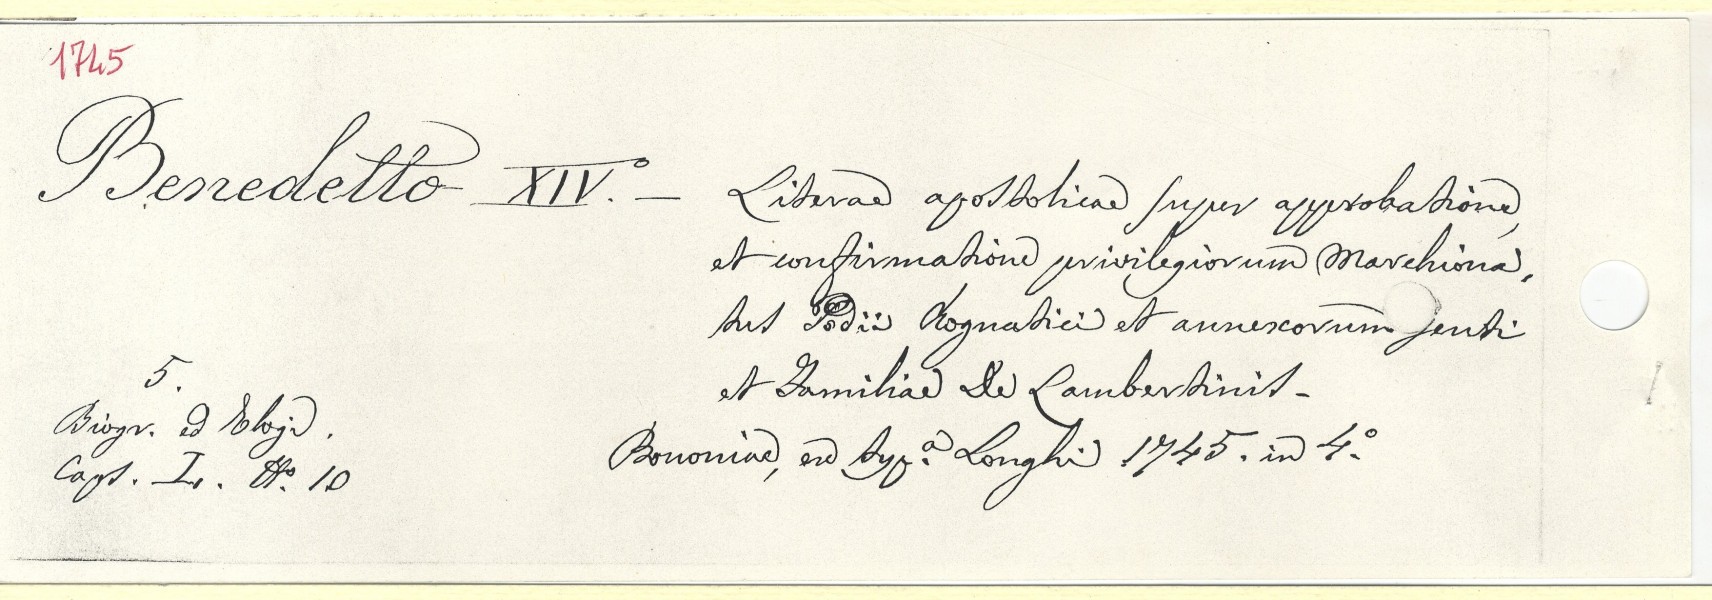 1745
Benedetto XIV.° — Literae apostolicae super approbatione,
et confirmatione privilegiorum Marchiona,
tus Podii Cognatici et annexorum genti
et Familiae De Lambertinis -
Bononiae, ex typ.ª Longhi 1745. in 4.°
5.
Biogr. ed Elogi.
Caps. I. N.° 10